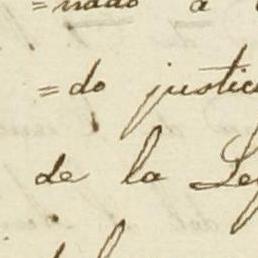 =nado a
=do justic
de la Le